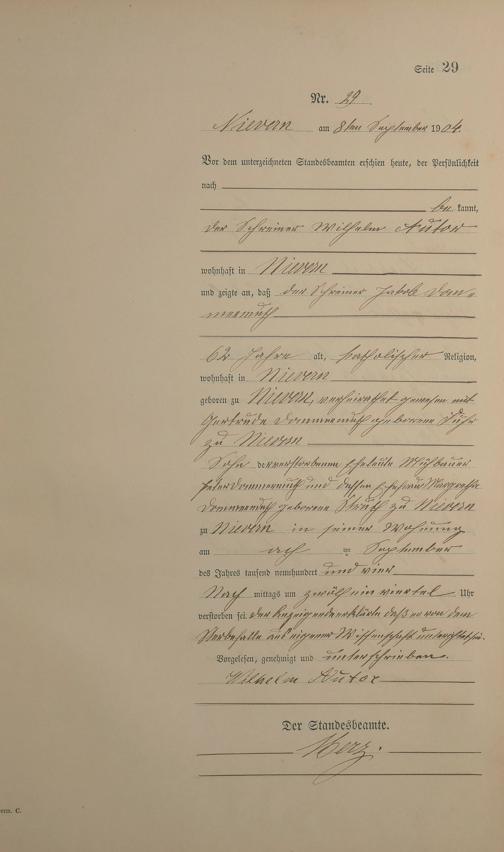 Seite 29
Nr. 29
Nievern am 8ten September 1904.
Vor dem unterzeichneten Standesbeamten erschien heute, der Persönlichkeit
nach
be kannt,
der Schreiner Wilhelm Autor
wohnhaft in Nievern
und zeigte an, daß der Schreiner Jakob Dom-
mermuth
62 Jahre alt, katholischer Religion,
wohnhaft in Nievern
geboren zu Nievern, verheirathet gewesen mit
Gertrude Dommermuth geborene
zu Nievern
Sohn der verstorbenen Eheleute
Peter Dommermuth und dessen Ehefrau Margarethe
Dommermuth geborene Struth zu Nievern
zu Nievern in seiner Wohnung
am acht September
des Jahres tausend neunhundert und vier
Nach mittags um zwölf ein viertel Uhr
verstorben sei. Der Anzeigende erklärte daß er von dem
Sterbefalle aus eigener Wissenschaft unterrichtet sei.
Vorgelesen, genehmigt und unterschrieben.
Wilhelm Autor
Der Standesbeamte.
Herz.
rm. C.